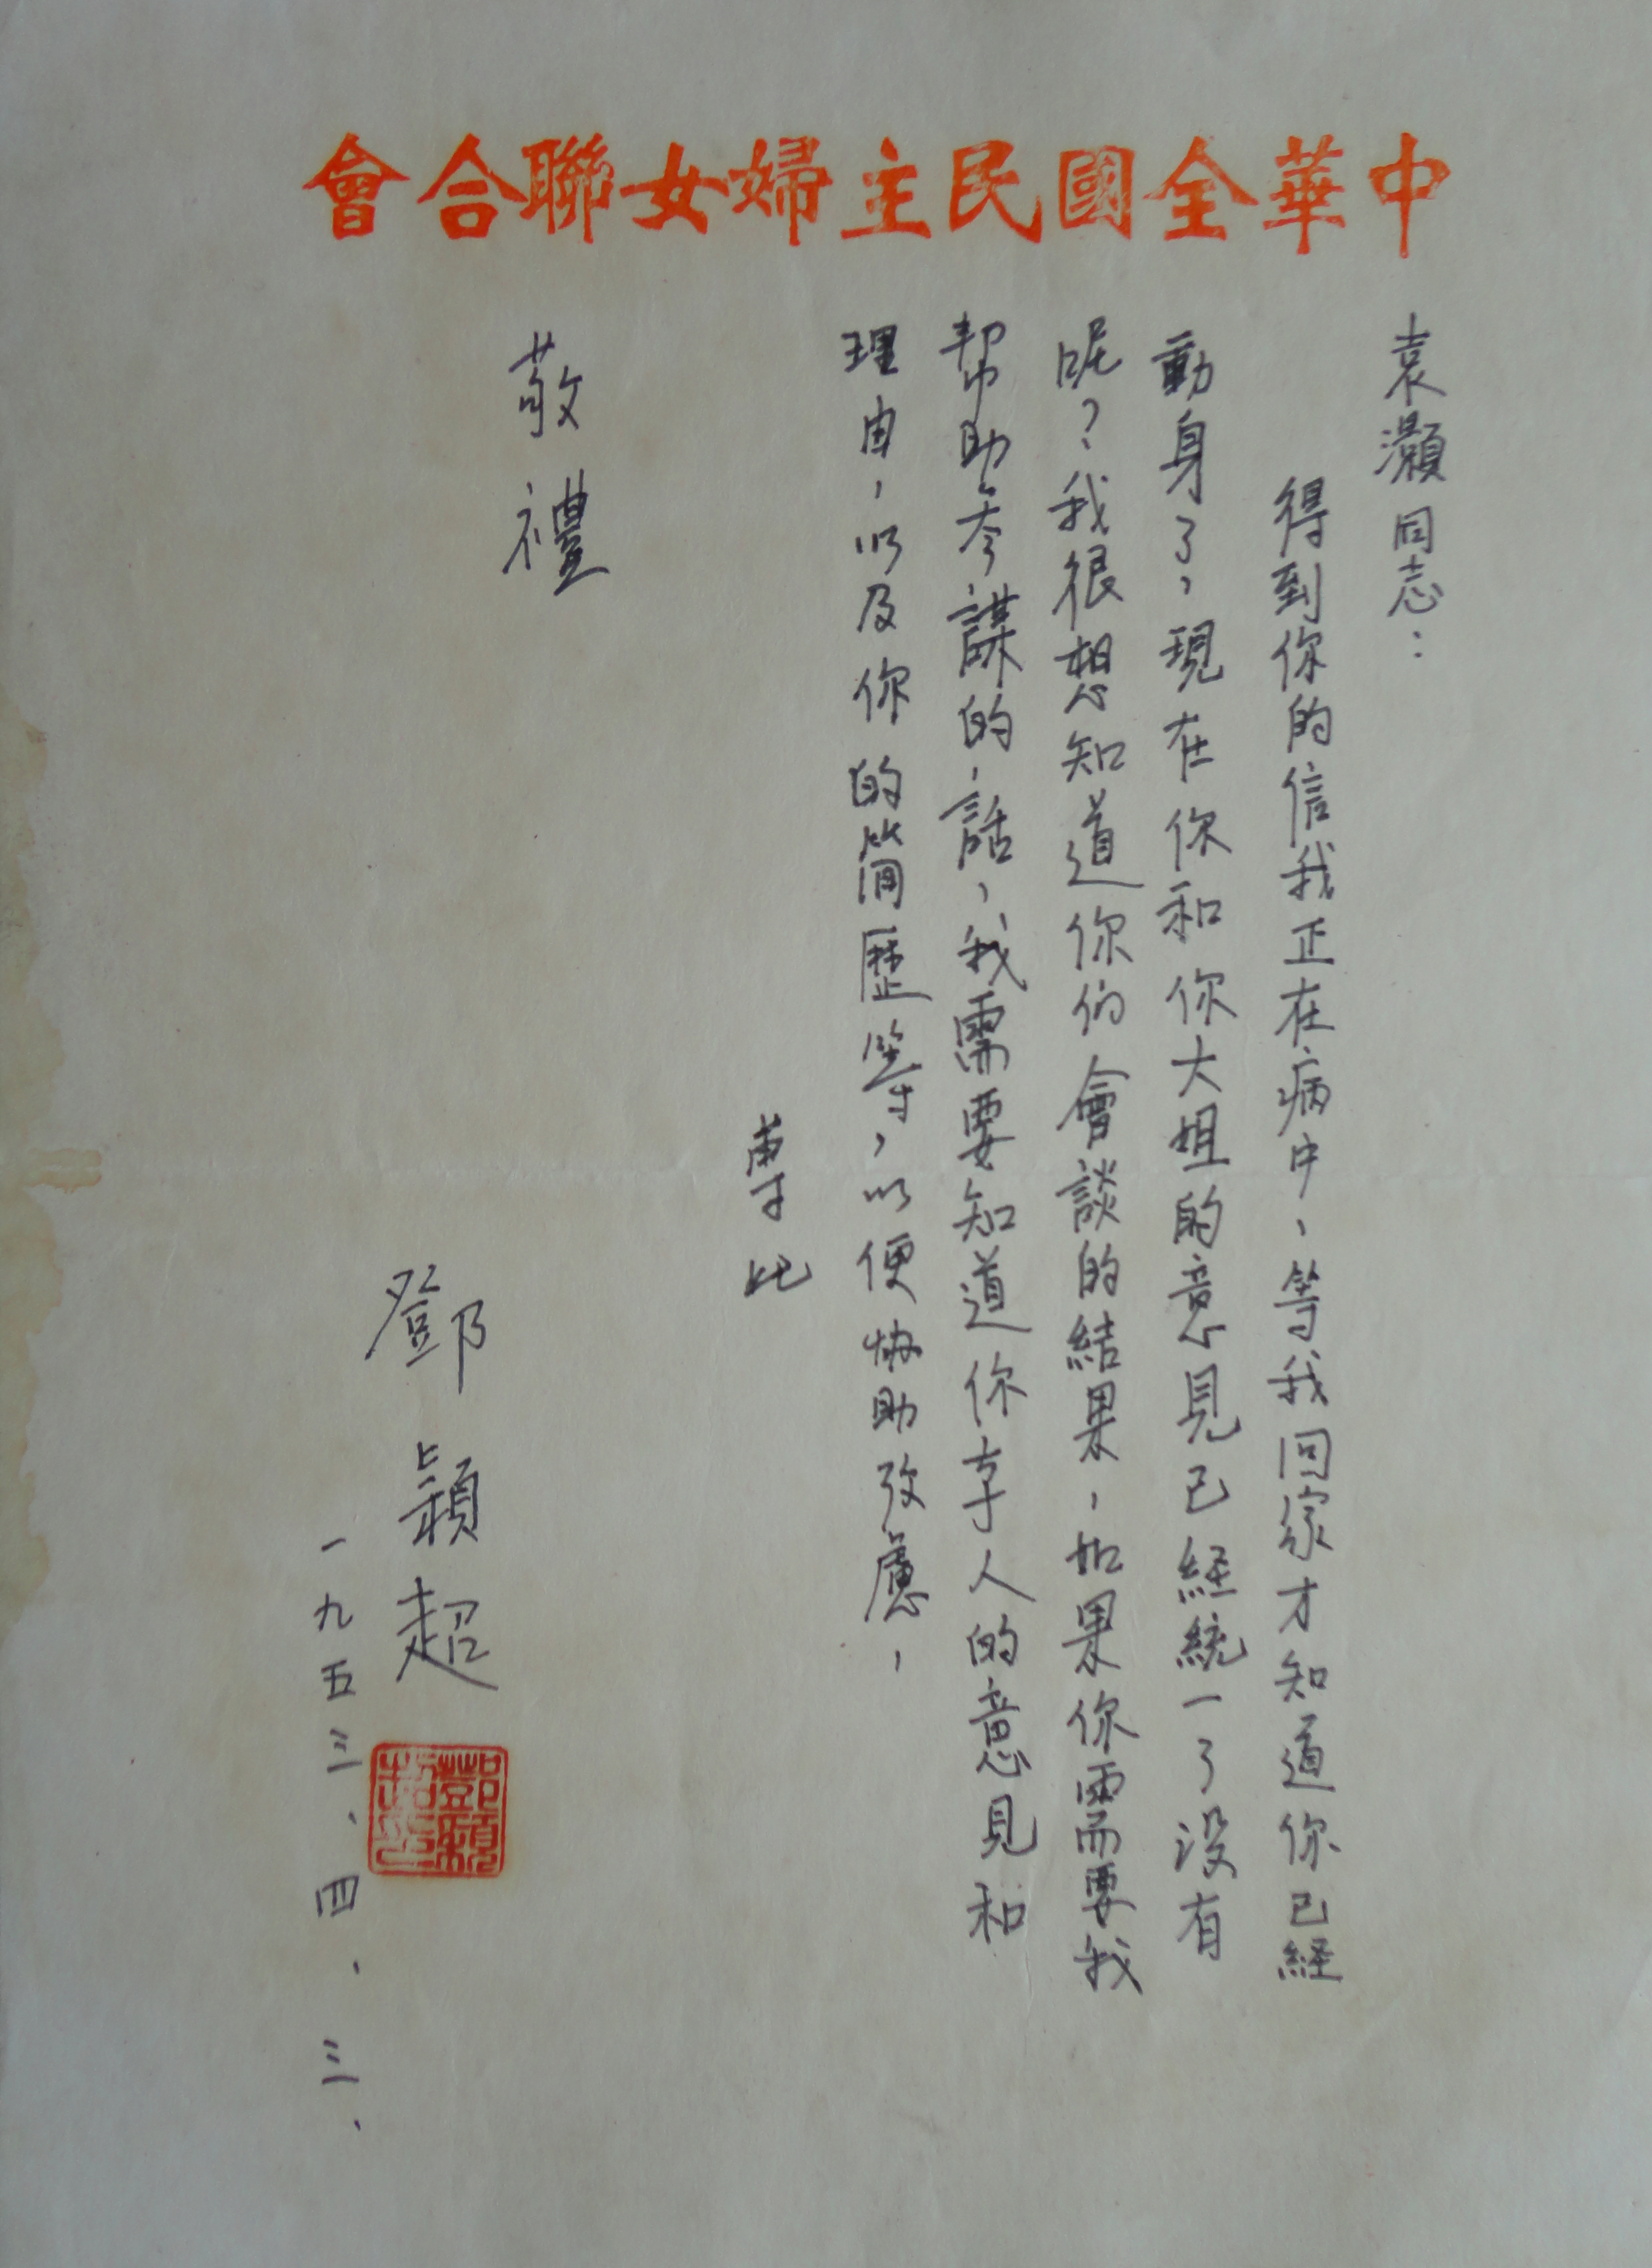 中華全國民主婦女聯合會
袁灝同志：
得到你的信我正在病中，等我回家才知道你已經
動身了，現在你和你大姐的意見已経統一了没有
呢？我很想知道你们會談的結果，如果你需要我
帮助参謀的話，我需要知道你本人的意見和
理由，以及你的简歷等，以便協助攷慮，
專此
敬禮
鄧穎超
鄧穎超
一九五三、四、三、